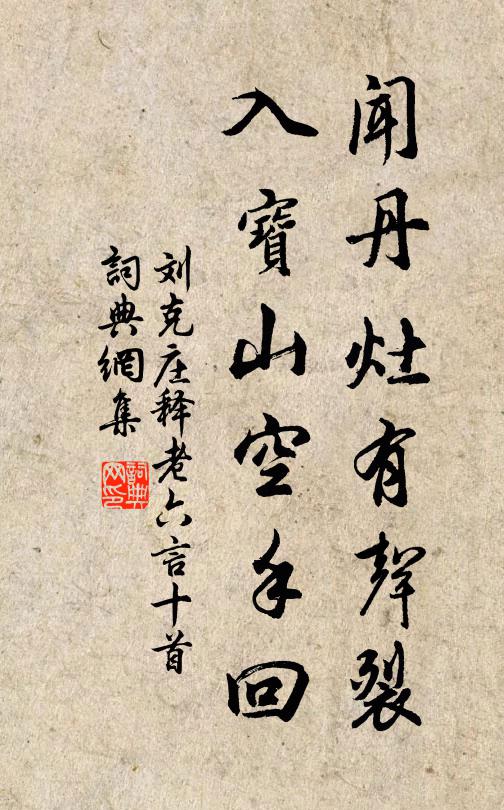 闻丹灶有聲裂
入寶山空手回
刘克庄释老六言十首
詞典網集
詞典
网印